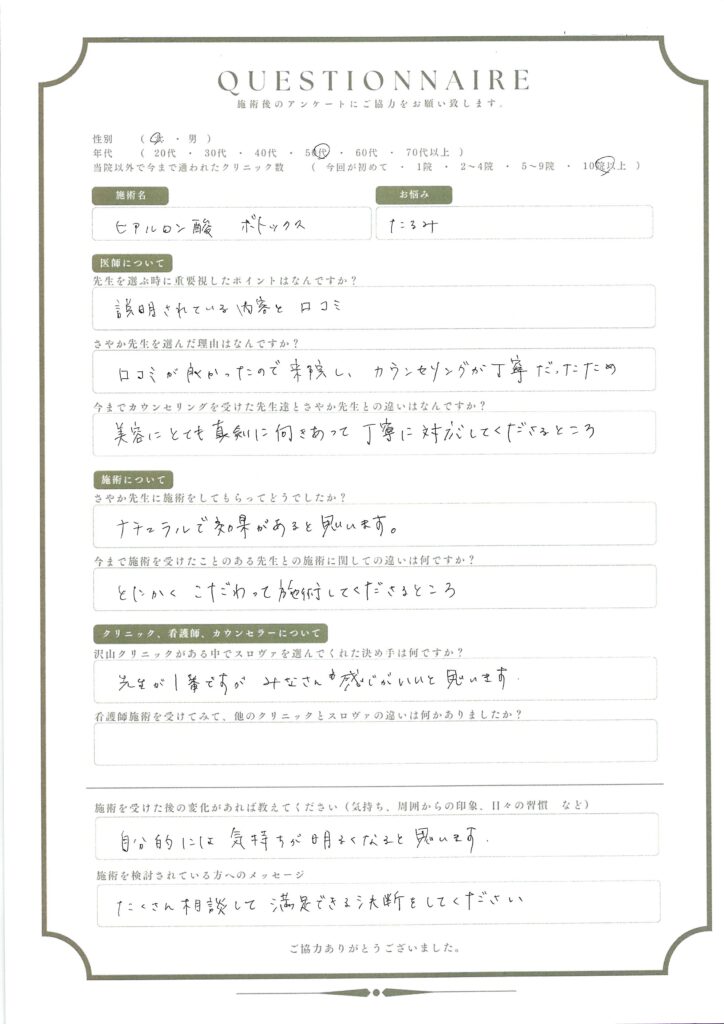 QUESTIONNAIRE
施術後のアンケートにご協力をお願い致します.
性別 ( 女 ・ 男 )
年代 ( 20代 ・ 30代 ・ 40代 ・ 50代 ・ 60代 ・ 70代以上 )
当院以外で今まで通われたクリニック数 ( 今回が初めて ・ 1院 ・ 2〜4院 ・ 5〜9院 ・ 10院以上 )
施術名 お悩み
ヒアルロン酸 ボトックス たるみ
医師について
先生を選ぶ時に重要視したポイントはなんですか?
説明されている内容と 口コミ
さやか先生を選んだ理由はなんですか?
口コミが良かったので来院し、カウンセリングが丁寧だったため
今までカウンセリングを受けた先生達とさやか先生との違いはなんですか?
美容にとても真剣に向きあって丁寧に対応してくださるところ
施術について
さやか先生に施術をしてもらってどうでしたか?
ナチュラルで効果があると思います。
今まで施術を受けたことのある先生との施術に関しての違いは何ですか?
とにかく こだわって施術してくださるところ
クリニック、看護師、カウンセラーについて
沢山クリニックがある中でスロヴァを選んでくれた決め手は何ですか?
先生が1番ですが みなさんも感じがいいと思います.
看護師施術を受けてみて、他のクリニックとスロヴァの違いは何かありましたか?
施術を受けた後の変化があれば教えてください(気持ち、周囲からの印象、日々の習慣 など)
自分的には 気持ちが明るくなると思います.
施術を検討されている方へのメッセージ
たくさん相談して 満足できる決断をしてください
ご協力ありがとうございました。